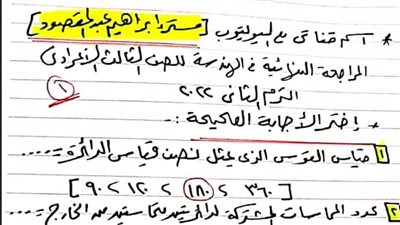 * اسم قناتى على اليوتيوب [مستر ابراهيم عبد المقصود]
المراجعة النهائية فى الهندسة للصف الثالث الإعدادى
الترم الثانى ٢٠٢٢ ①
* إختر الأجابة الصحيحة :-
١ قياس القوس الذى يمثل نصف قياس الدائرة = .....
[ ٣٦٠ ، ١٨٠ ، ١٢٠ ، ٩٠ ]
٢ عدد المماسات المشتركة لدائرتين متماستين من الخارج = ....